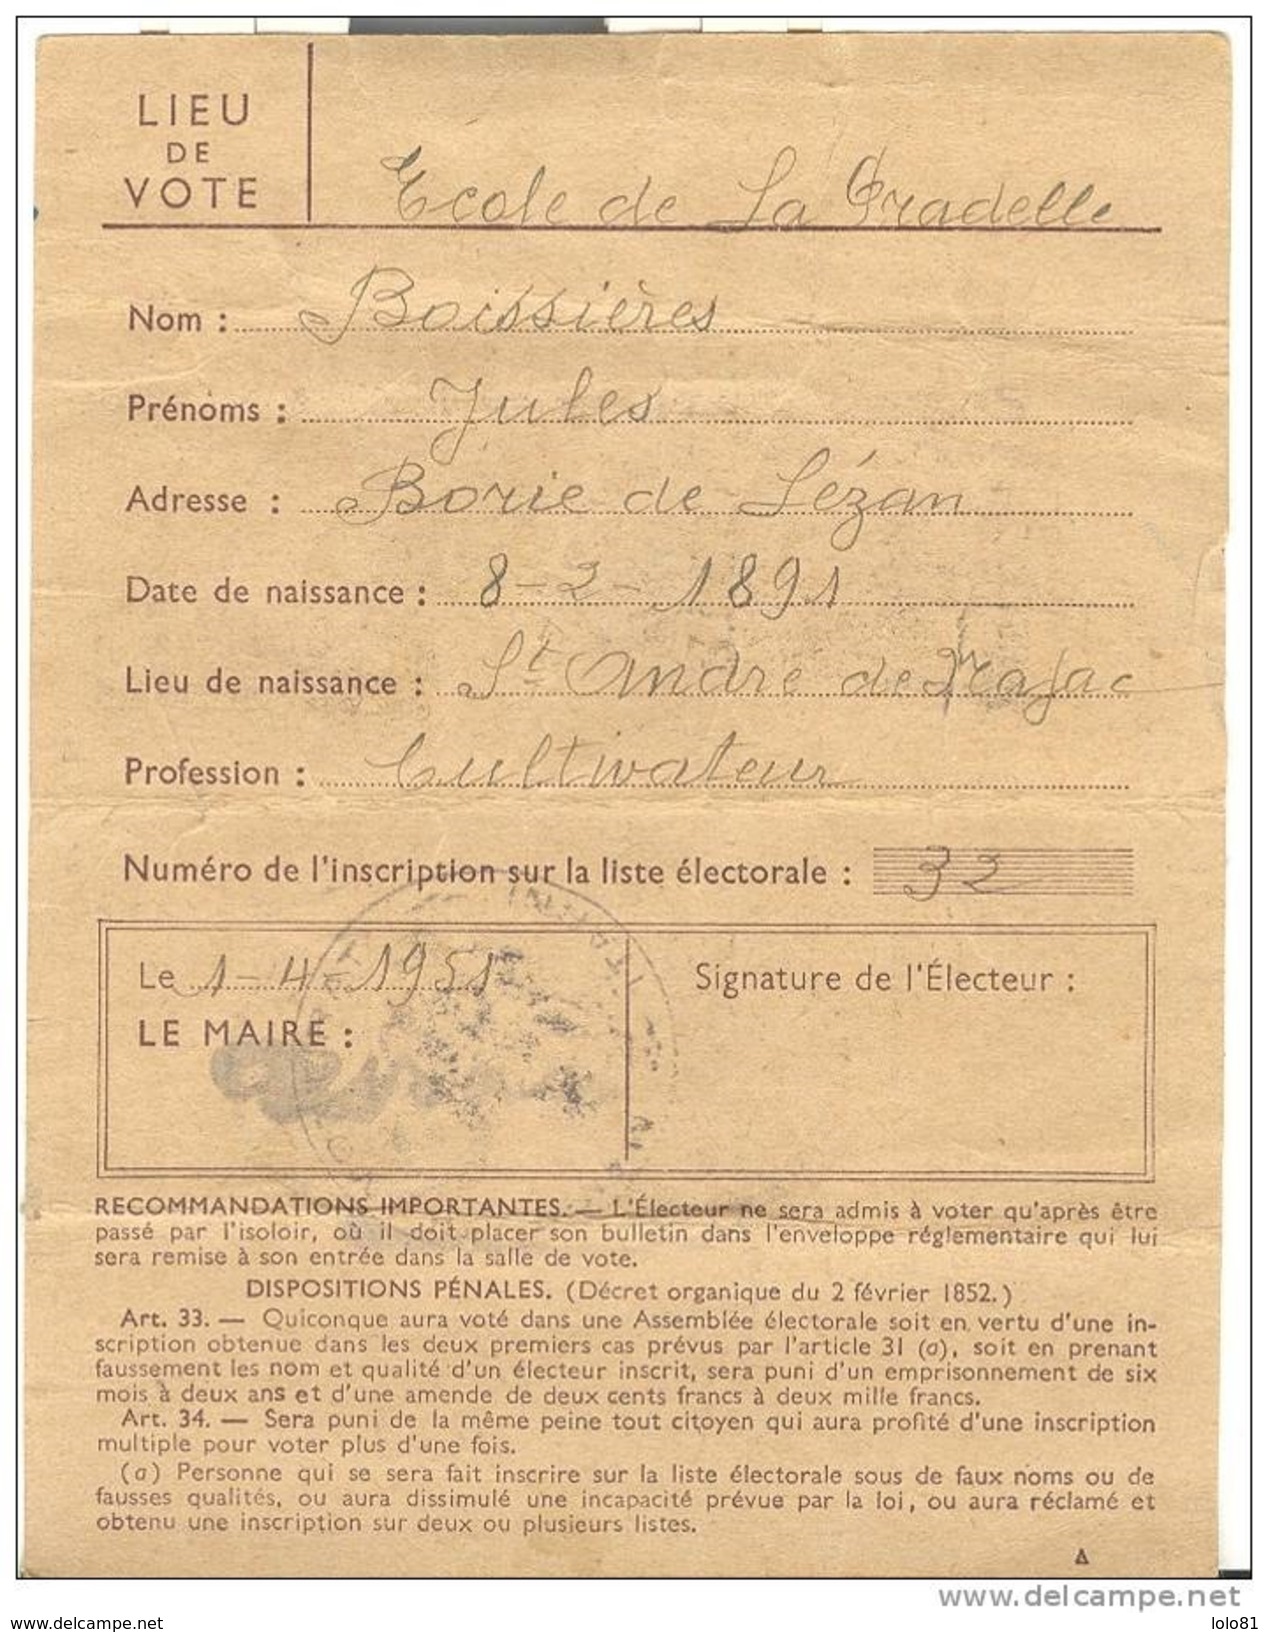 LIEU
DE
VOTE
Ecole de La Pradelle
Nom : Boissières
Prénoms : Jules
Adresse : Borie de Lézan
Date de naissance : 8-2-1891
Lieu de naissance : St André de Najac
Profession : Cultivateur
Numéro de l'inscription sur la liste électorale : 32
Le 1-4-1951
LE MAIRE :
Signature de l'Électeur :
RECOMMANDATIONS IMPORTANTES. — L'Électeur ne sera admis à voter qu'après être
passé par l'isoloir, où il doit placer son bulletin dans l'enveloppe réglementaire qui lui
sera remise à son entrée dans la salle de vote.
DISPOSITIONS PÉNALES. (Décret organique du 2 février 1852.)
Art. 33. — Quiconque aura voté dans une Assemblée électorale soit en vertu d'une in-
scription obtenue dans les deux premiers cas prévus par l'article 31 (a), soit en prenant
faussement les nom et qualité d'un électeur inscrit, sera puni d'un emprisonnement de six
mois à deux ans et d'une amende de deux cents francs à deux mille francs.
Art. 34. — Sera puni de la même peine tout citoyen qui aura profité d'une inscription
multiple pour voter plus d'une fois.
(a) Personne qui se sera fait inscrire sur la liste électorale sous de faux noms ou de
fausses qualités, ou aura dissimulé une incapacité prévue par la loi, ou aura réclamé et
obtenu une inscription sur deux ou plusieurs listes.
Δ
www.delcampe.net
www.delcampe.net
lolo81